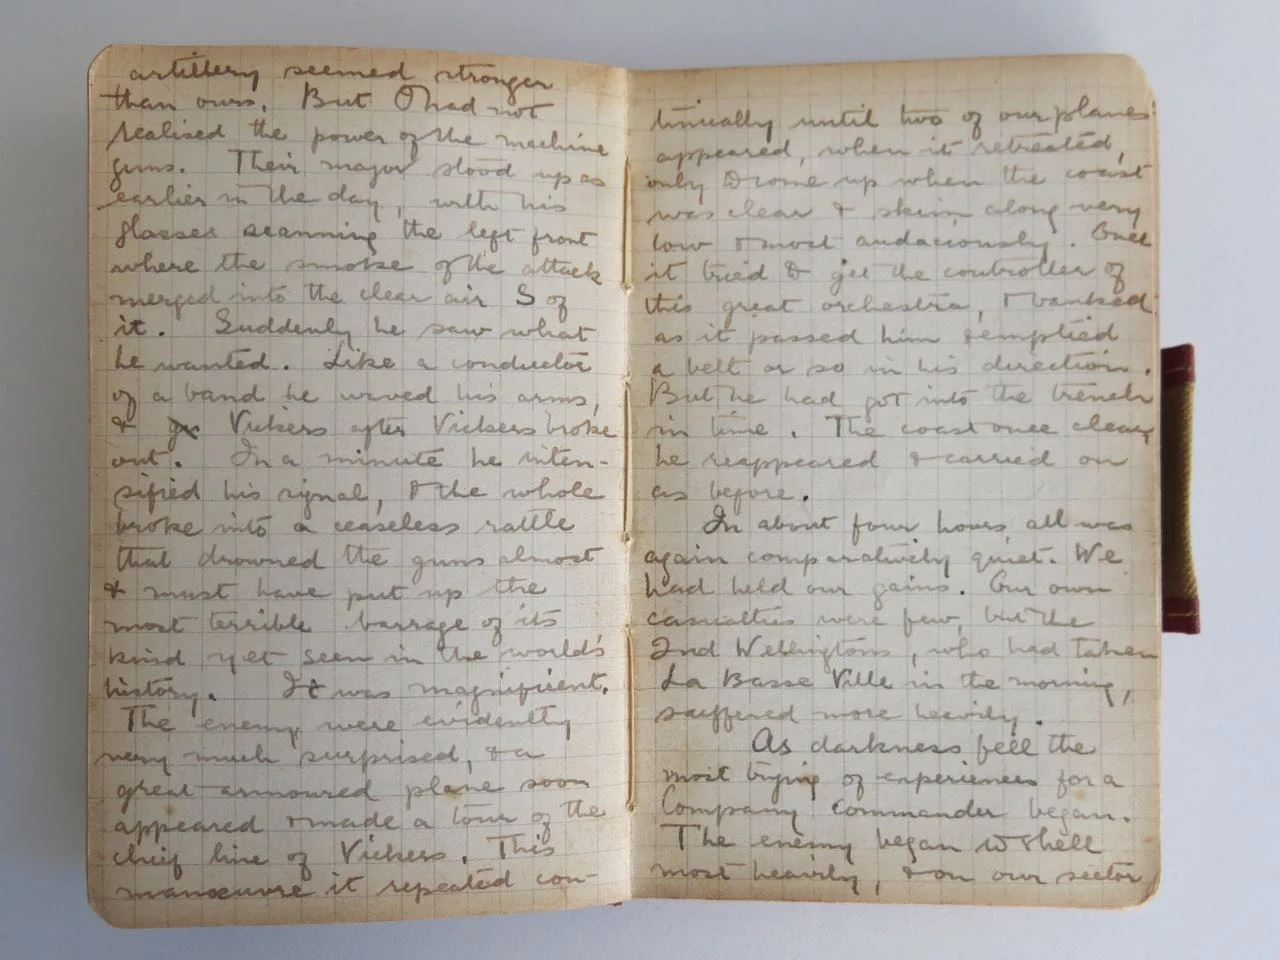 artillery seemed stronger
than ours. But I had not
realised the power of the machine
guns. Their major stood up as
earlier in the day, with his
glasses scanning the left front
where the smoke of the attack
merged into the clear air S of
it. Suddenly he saw what
he wanted. Like a conductor
of a band he waved his arms,
& Vickers after Vickers broke
out. In a minute he inten-
sified his signal, & the whole
broke into a ceaseless rattle
that drowned the guns almost
& must have put up the
most terrible barrage of its
kind yet seen in the world's
history. It was magnificent.
The enemy were evidently
very much surprised, & a
great armoured plane soon
appeared & made a tour of the
chief line of Vickers. This
manoeuvre it repeated con-
tinually until two of our planes
appeared, when it retreated,
only to come up when the coast
was clear & skim along very
low & most audaciously. Once
it tried to get the controller of
this great orchestra, & banked
as it passed him & emptied
a belt or so in his direction.
But he had got into the trench
in time. The coast once clear
he reappeared & carried on
as before.
In about four hours all was
again comparatively quiet. We
had held our gains. Our own
casualties were few, but the
2nd Wellingtons, who had taken
La Basse Ville in the morning,
suffered more heavily.
As darkness fell the
most trying of experiences for a
Company Commander began.
The enemy began to shell
most heavily, & on our sector